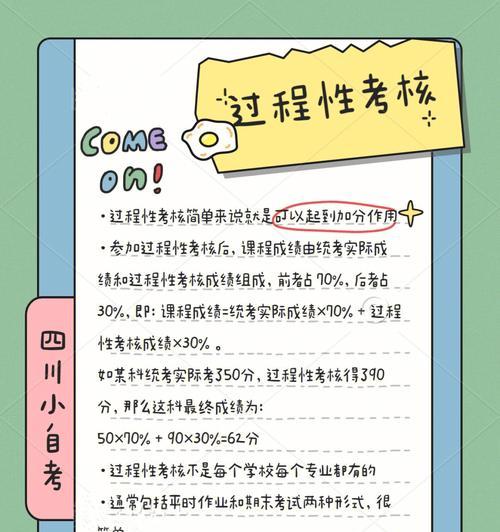 过程性考核
COME
on!
·过程性考核简单来说就是可以起到加分作用
·参加过程性考核后，课程成绩由统考实际成
绩和过程性考核成绩组成，前者占70%，后者占
30%，即：课程成绩=统考实际成绩×70% + 过程
性考核成绩×30% 。
如某科统考实际考350分，过程性考核得390
分，那么这科最终成绩为：
50×70% + 90×30%=62分
·过程性考核不是每个学校每个专业都有的
·通常包括平时作业和期末考试两种形式，很
四川小自考